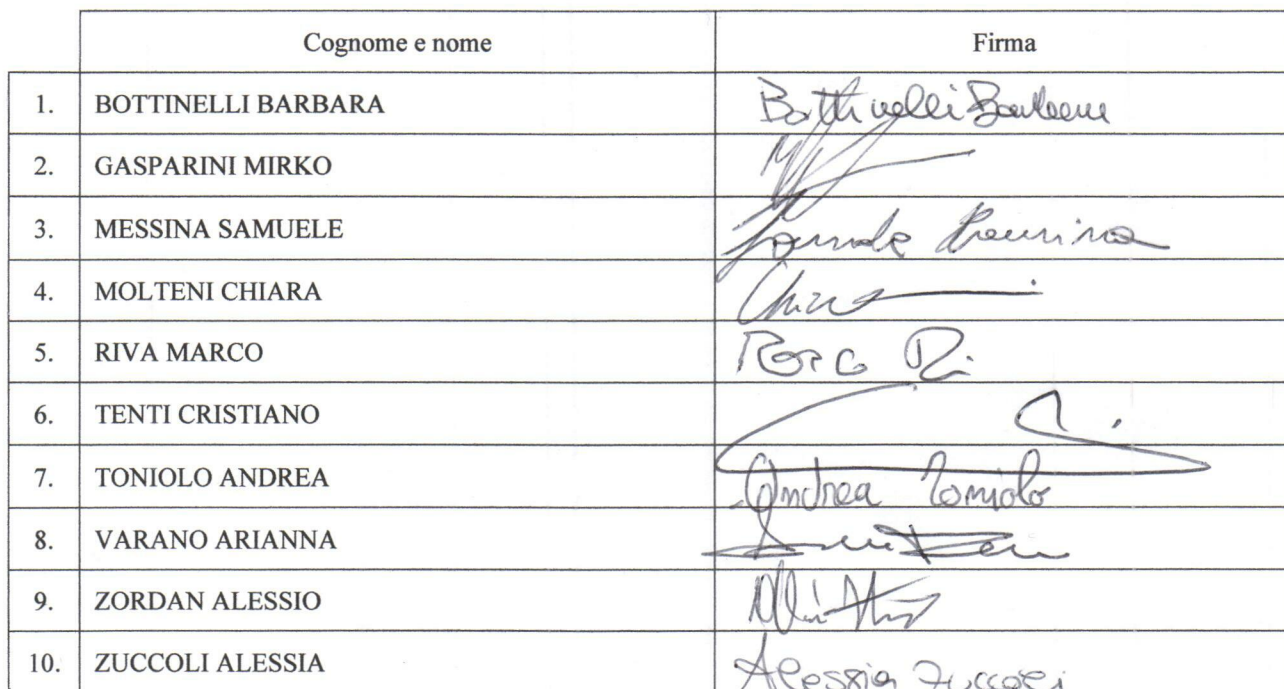 Cognome e nome Firma
1. BOTTINELLI BARBARA Bottinelli Barbara
2. GASPARINI MIRKO
3. MESSINA SAMUELE Samuele Messina
4. MOLTENI CHIARA
5. RIVA MARCO
6. TENTI CRISTIANO
7. TONIOLO ANDREA Andrea Toniolo
8. VARANO ARIANNA
9. ZORDAN ALESSIO
10. ZUCCOLI ALESSIA Alessia Zuccoli